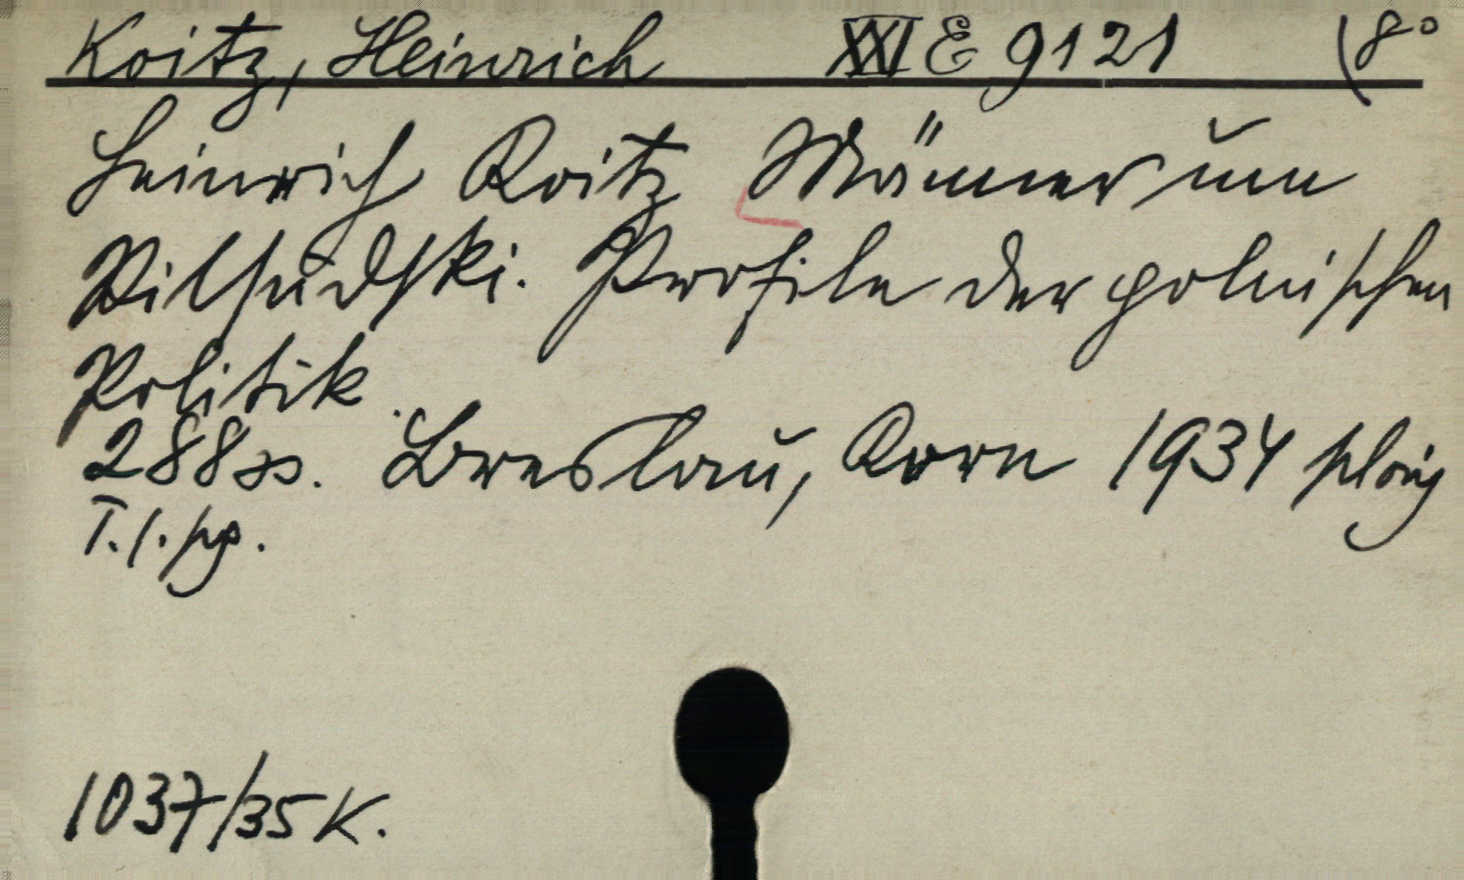 Koitz, Heinrich XXI E 9121 (8°
Heinrich Koitz Männer um
Pilsudski. Profile der polnischen
Politik.
288 ss. Breslau, Korn 1934
T. s. pg.
1037/35 K.